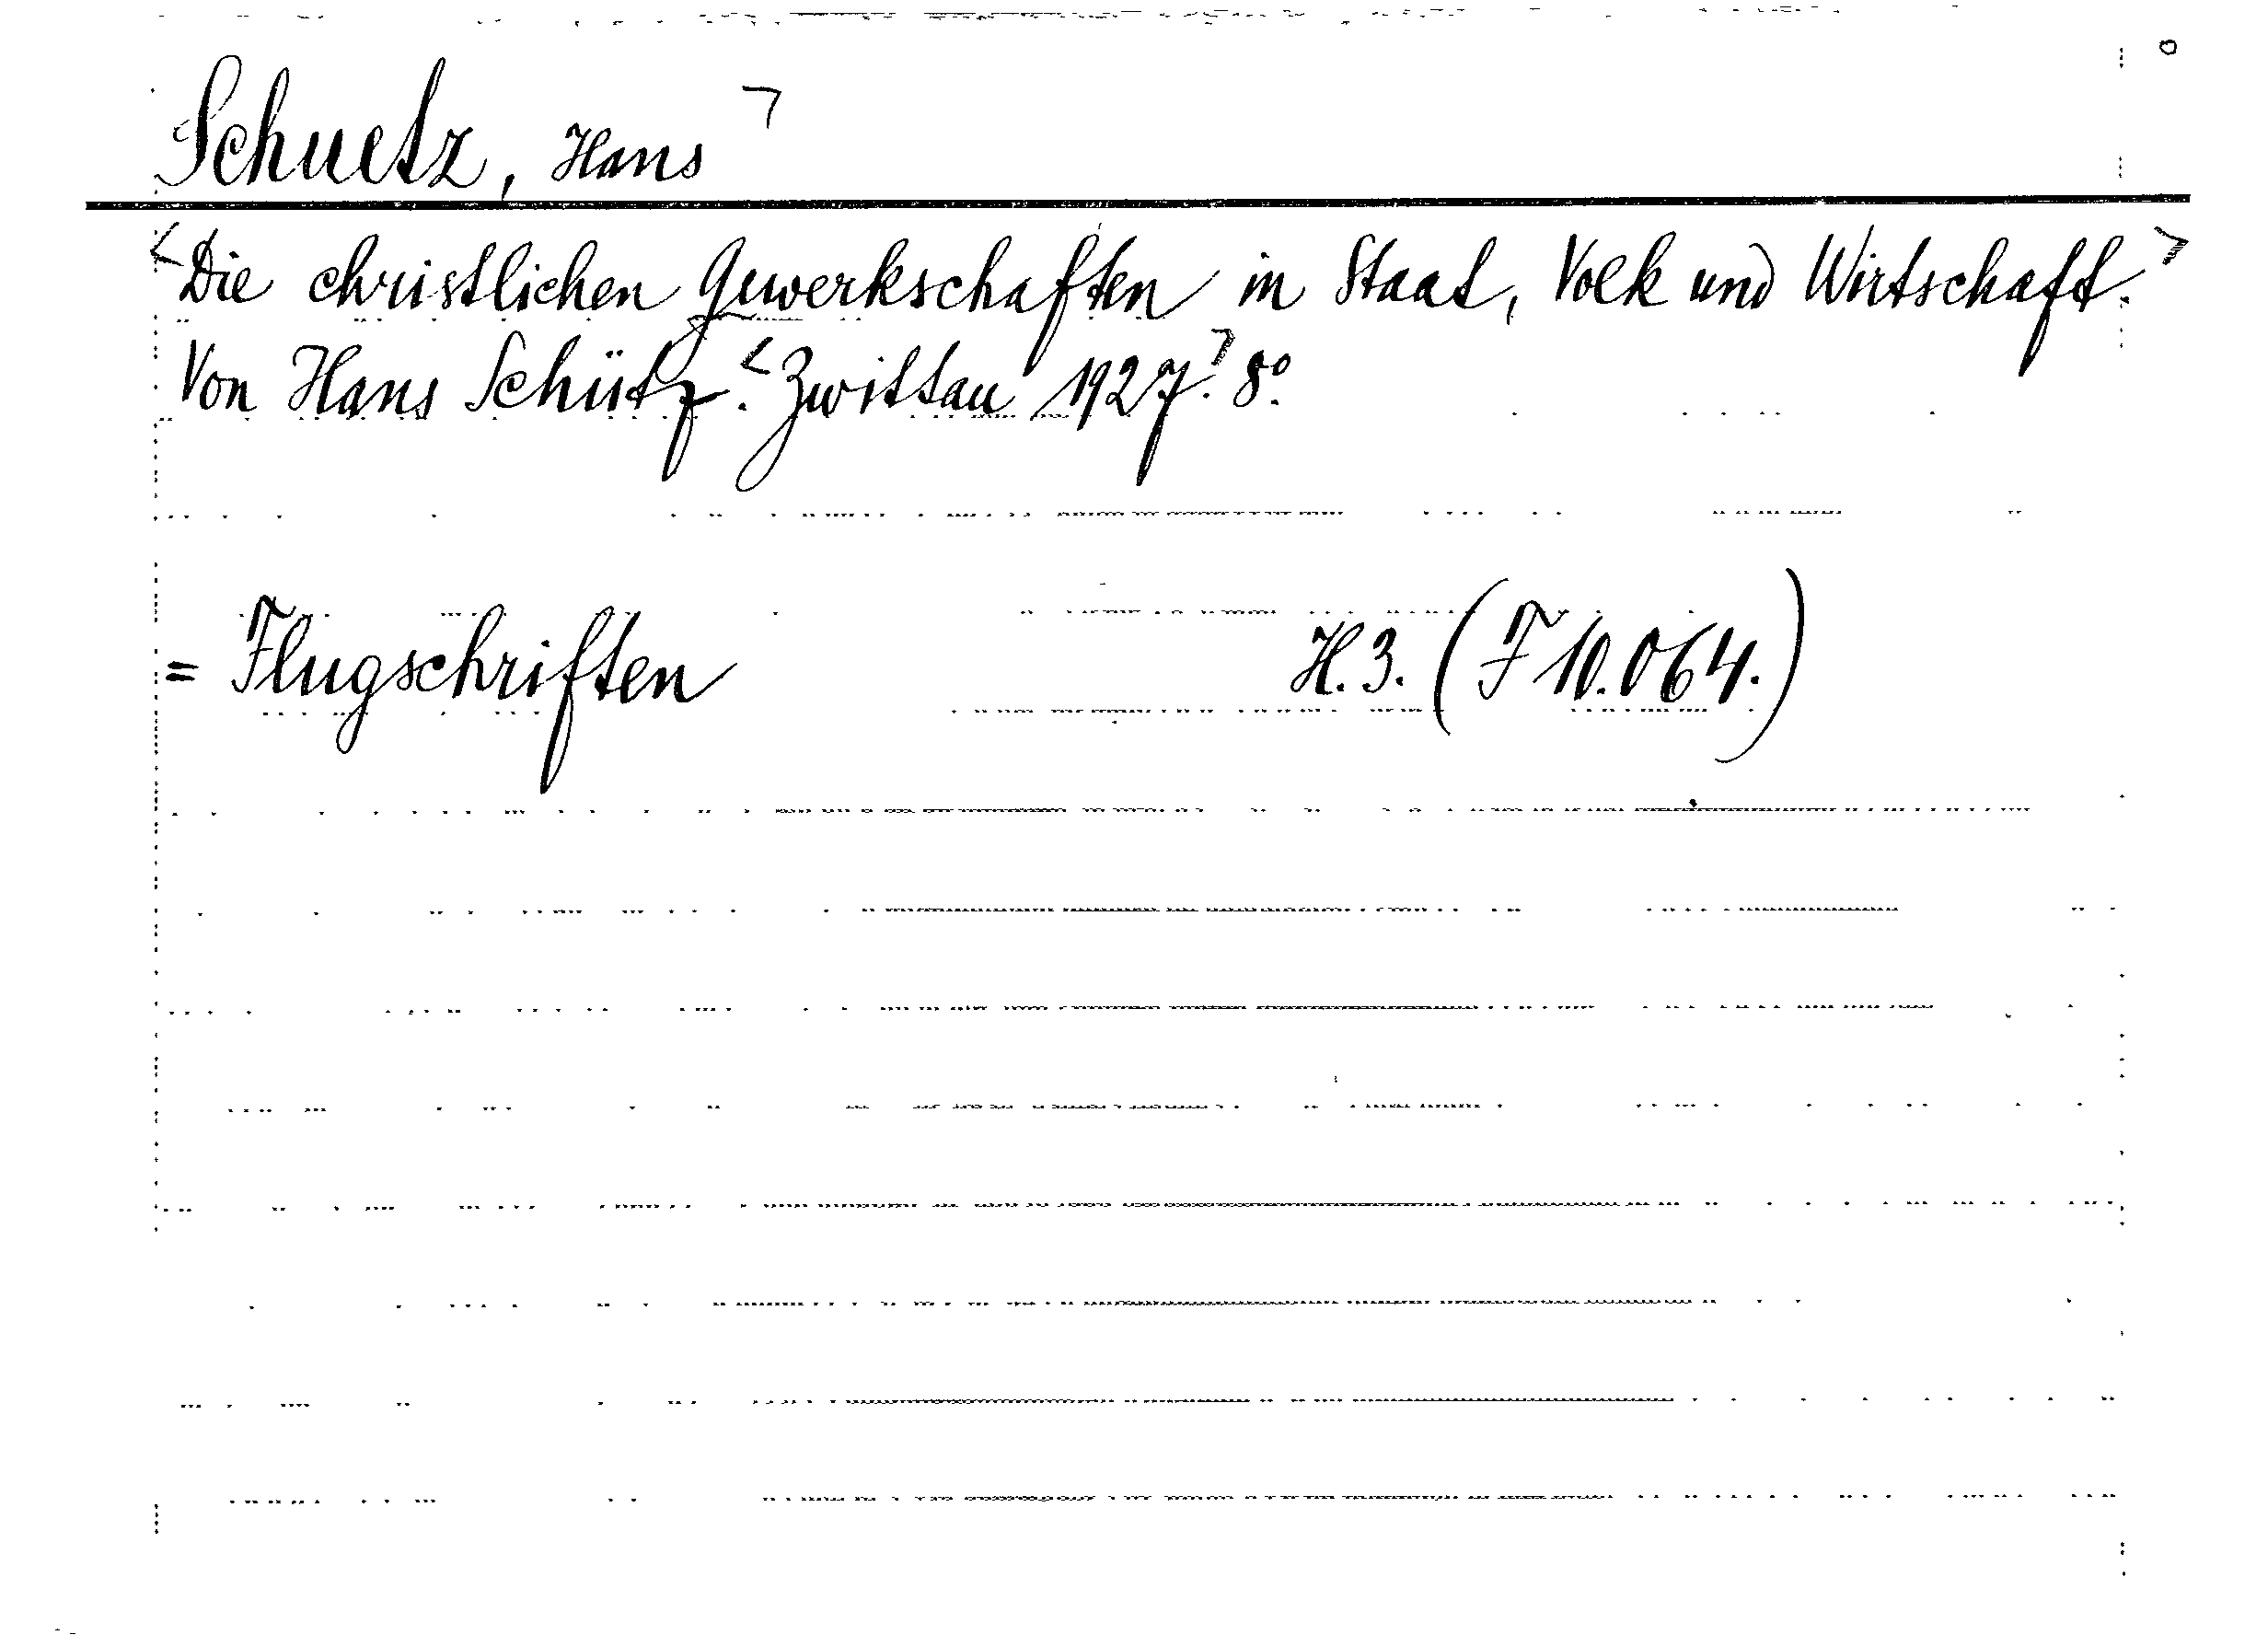 Schuetz, Hans ¬
<Die christlichen Gewerkschaften in Staat, Volk und Wirtschaft.>
Von Hans Schütz. <Zwittau 1927.> 8°.
= Flugschriften H. 3. (F 10.064.)